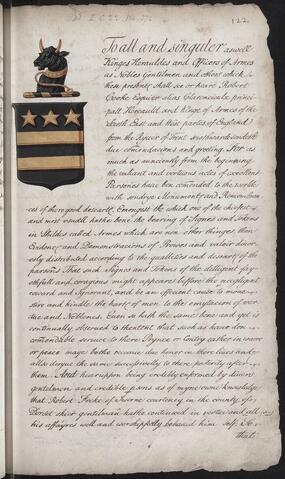 122
To all and singuler aswell
Kinges Herauldes and Officers of Armes
as Nobles Gentilmen and others which
these presents shall see or heare Robert
Cooke Esquier alias Clarencieulx princi-
pall Herauld and Kinge of Armes of the
South East and West partes of England
from the Ryver of Trent southwards sendeth
due comendacions and greeting. For as
much as aunciently from the beginning
the valiant and vertuous actes of excellent
Persones have ben comended to the worlde
with sondrye Monuments and Remembran
ces of there good deserts. Emongest the which one of the chiefest
and most usuall hathe bene the bearing of Signes and Tokens
in Shilds called Armes which are non other thinges then
Evidences and Demonstracions of Prowes and valoir diver-
sly distributed according to the qualities and deserts of the
parsons That such Signes and Tokens of the diligent fay-
thfull and coragious might appeare before the negligent
coward and Ignorant, and be an efficient cause to move
stire and kindle the harts of men to the imytacion of ver-
tue and Noblenes. Even so hath the same bene and yet is
continually observed to thentent that such as have don
commendable service to there Prynce or Contry eather in warre
or peace maye bothe receave due honor in there lives and
also deryve the same successively to there posterity after
them. And wheareuppon being credibly enformed by divers
gentelmen and credible parsons as of myne owne knowledge
that Robert Freke of Iwerne courteney in the county of
Dorset chief gentelman hathe continued in vertue and
his affayres well and worshippfully behaved him self. So
that